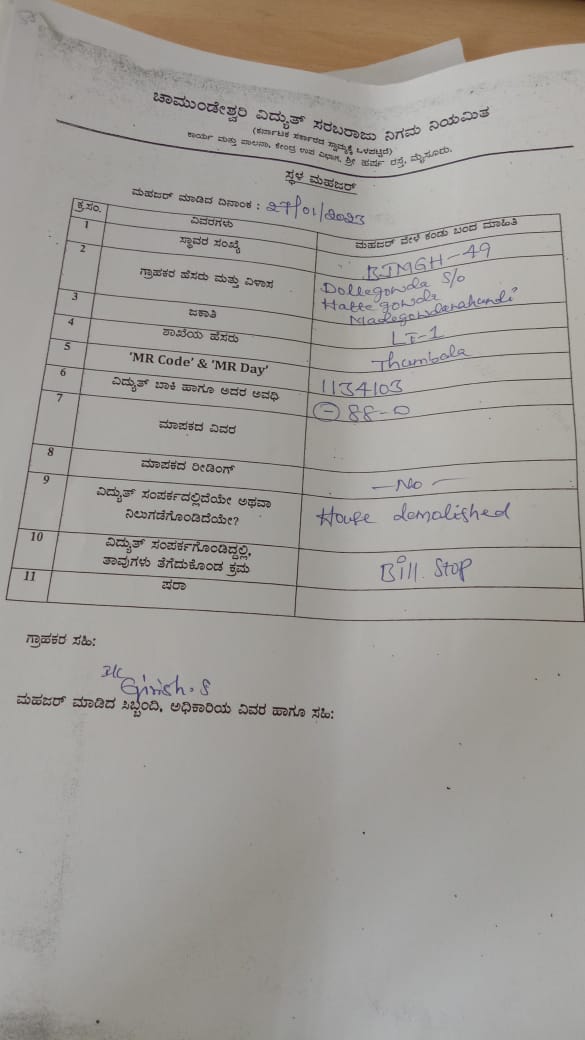 ಚಾಮುಂಡೇಶ್ವರಿ ವಿದ್ಯುತ್ ಸರಬರಾಜು ನಿಗಮ ನಿಯಮಿತ
(ಕರ್ನಾಟಕ ಸರ್ಕಾರದ ಸ್ವಾಮ್ಯಕ್ಕೆ ಒಳಪಟ್ಟಿದೆ)
ಕಾರ್ಯ ಮತ್ತು ಪಾಲನಾ, ಕೇಂದ್ರ ಉಪ ವಿಭಾಗ, ಶ್ರೀ ಹರ್ಷ ರಸ್ತೆ, ಮೈಸೂರು.
ಸ್ಥಳ ಮಹಜರ್
ಮಹಜರ್ ಮಾಡಿದ ದಿನಾಂಕ : 27/01/2023
ಕ್ರ.ಸಂ. ವಿವರಗಳು ಮಹಜರ್ ವೇಳೆ ಕಂಡು ಬಂದ ಮಾಹಿತಿ
1 ಸ್ಥಾವರ ಸಂಖ್ಯೆ BJMGH-49
2 ಗ್ರಾಹಕರ ಹೆಸರು ಮತ್ತು ವಿಳಾಸ Dollegowda S/o
Hattegowda
3 ಜಕಾತಿ LT-1
4 ಶಾಖೆಯ ಹೆಸರು Thumbala
5 'MR Code' & 'MR Day' 1134103
6 ವಿದ್ಯುತ್ ಬಾಕಿ ಹಾಗೂ ಅದರ ಅವಧಿ -88-0
7 ಮಾಪಕದ ವಿವರ
8 ಮಾಪಕದ ರೀಡಿಂಗ್ -No-
9 ವಿದ್ಯುತ್ ಸಂಪರ್ಕದಲ್ಲಿದೆಯೇ ಅಥವಾ
ನಿಲುಗಡೆಗೊಂಡಿದೆಯೇ? House demolished
10 ವಿದ್ಯುತ್ ಸಂಪರ್ಕಗೊಂಡಿದ್ದಲ್ಲಿ,
ತಾವುಗಳು ತೆಗೆದುಕೊಂಡ ಕ್ರಮ Bill Stop
11 ಷರಾ
ಗ್ರಾಹಕರ ಸಹಿ:
Girish.S
ಮಹಜರ್ ಮಾಡಿದ ಸಿಬ್ಬಂದಿ, ಅಧಿಕಾರಿಯ ವಿವರ ಹಾಗೂ ಸಹಿ: